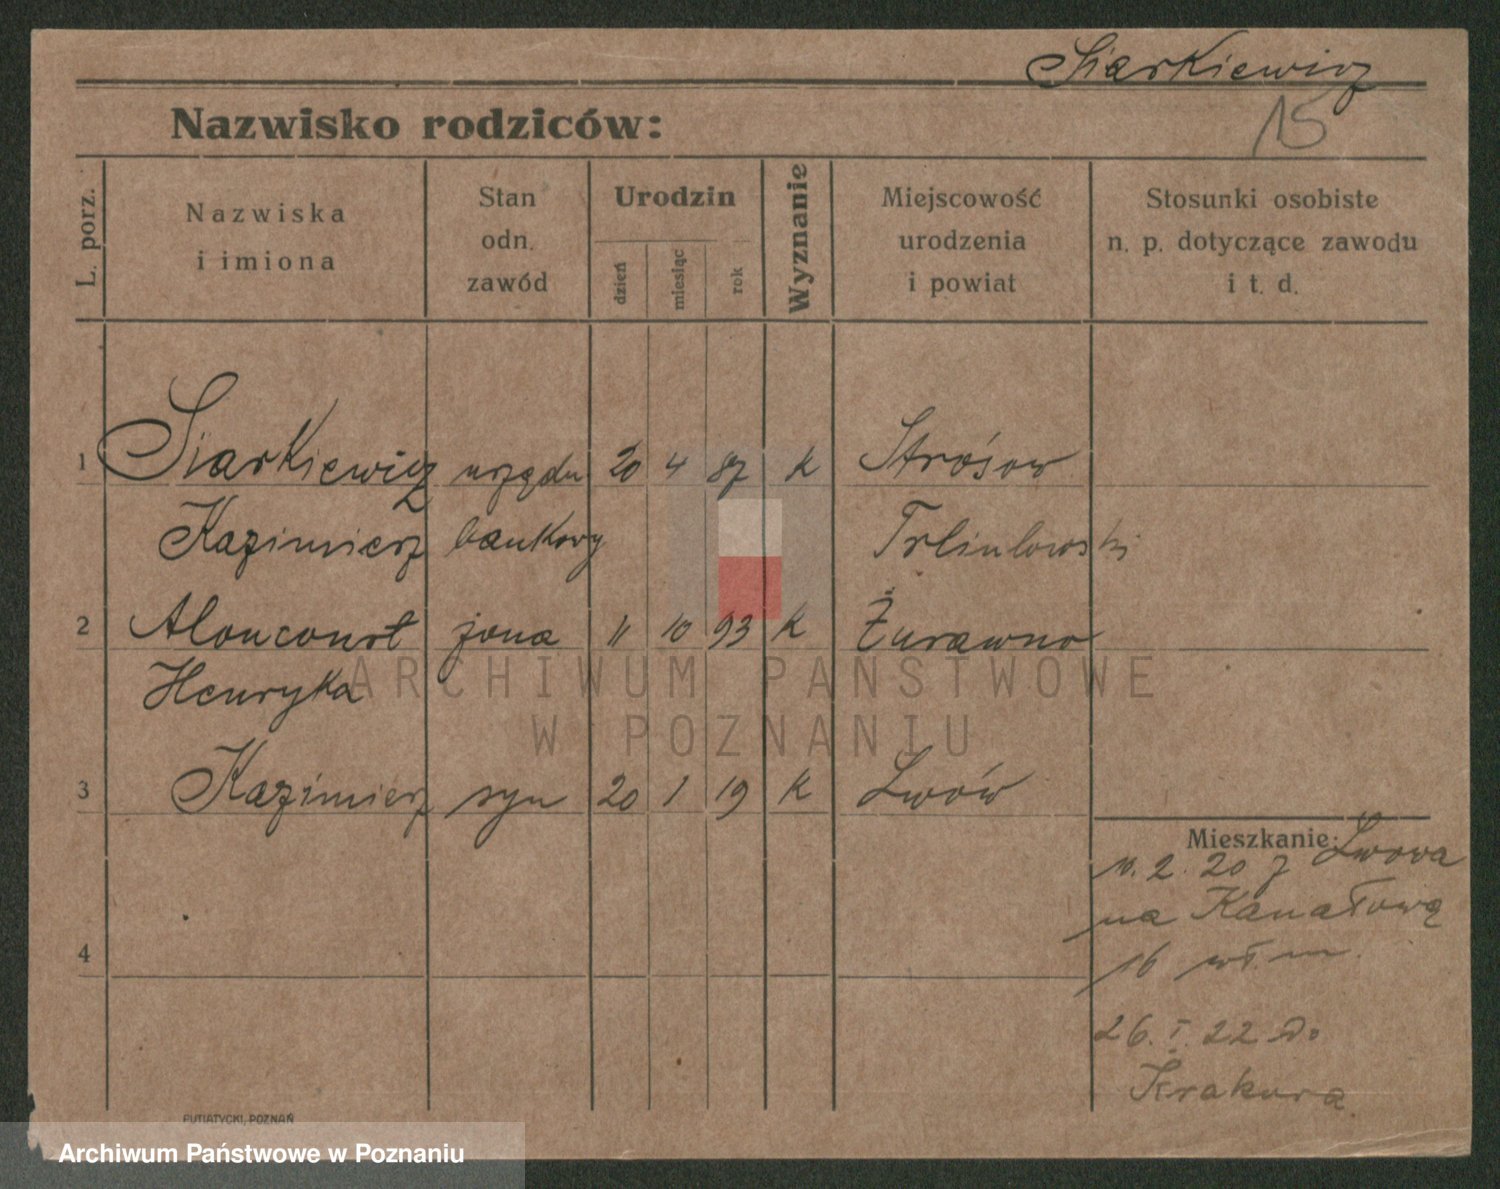 Siarkiewicz
15
Nazwisko rodziców:
L. porz.
Nazwiska
i imiona
Stan
odn.
zawód
Urodzin
dzień
miesiąc
rok
Wyznanie
Miejscowość
urodzenia
i powiat
Stosunki osobiste
n. p. dotyczące zawodu
i t. d.
1 Siarkiewicz urzędn 20 4 87 K Strósow
Kazimierz bankowy
2 Aloncourt żona 11 10 93 K Żurawno
Henryka
3 Kazimierz syn 20 1 19 K Lwów
Mieszkanie:
10.2.20 z Lwowa
na Kanałową
16 wł. m.
4
26.I.22 do
Krakowa.
PUTIATYCKI, POZNAŃ
ARCHIWUM PAŃSTWOWE
W POZNANIU
Archiwum Państwowe w Poznaniu